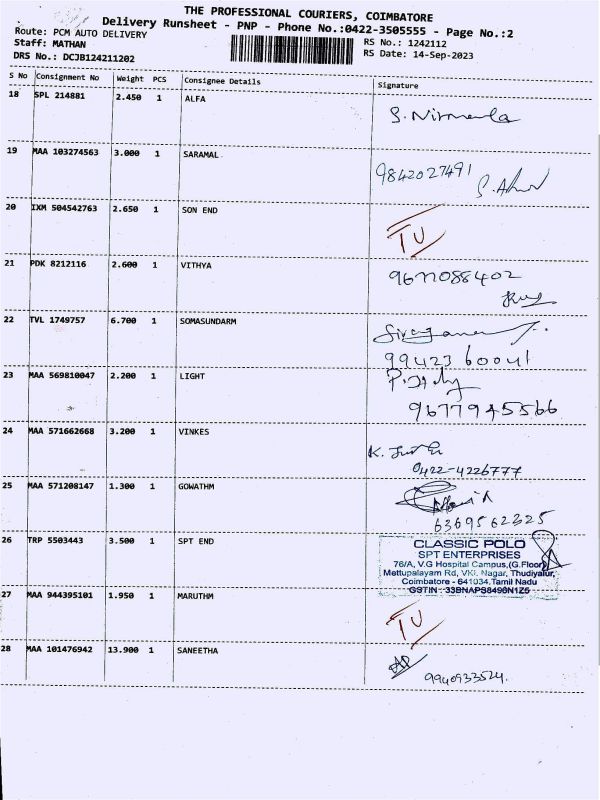 THE PROFESSIONAL COURIERS, COIMBATORE
Delivery Runsheet - PNP - Phone No.:0422-3505555 - Page No.:2
Route: PCM AUTO DELIVERY
Staff: MATHAN
RS No.: 1242112
DRS No.: DCJB124211202
RS Date: 14-Sep-2023
S No Consignment No Weight PCS Consignee Details Signature
18 SPL 214881 2.450 1 ALFA
S. Nirmala
19 MAA 103274563 3.000 1 SARAMAL
9842027491
20 IXM 504542763 2.650 1 SON END
TU
21 PDK 8212116 2.600 1 VITHYA
9677088402
22 TVL 1749757 6.700 1 SOMASUNDARM
99423 60041
23 MAA 569810047 2.200 1 LIGHT
9677945566
24 MAA 571662668 3.200 1 VINKES
0422-4226777
25 MAA 571208147 1.300 1 GOWATHM
6369562325
26 TRP 5503443 3.500 1 SPT END
CLASSIC POLO
SPT ENTERPRISES
76/A, V.G Hospital Campus,(G.Floor)
Mettupalayam Rd, VKL Nagar, Thudiyalur,
Coimbatore - 641034,Tamil Nadu
GSTIN : 33BNAPS8498N1Z5
27 MAA 944395101 1.950 1 MARUTHM
TU
28 MAA 101476942 13.900 1 SANEETHA
9940933524.